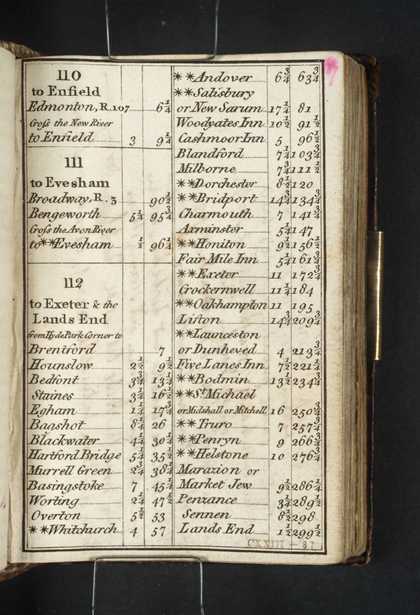 110
to Enfield
Edmonton, R.107 6¼
Cross the New River
to Enfield 3 9¼
111
to Evesham
Broadway, R.3 90½
Bengeworth 5¼ 95¾
Cross the Avon River
to **Evesham ½ 96¼
112
to Exeter & the
Lands End
from Hyde Park Corner to
Brentford 7
Hounslow 2½ 9½
Bedfont 3¾ 13¼
Staines 3¼ 16½
Egham 1¼ 17¾
Bagshot 8¼ 26
Blackwater 4¼ 30¼
Hartford Bridge 5¼ 35½
Murrell Green 2¾ 38¼
Basingstoke 7 45¼
Worting 2¼ 47½
Overton 5½ 53
**Whitchurch 4 57
**Andover 6¾ 63¾
**Salisbury
or New Sarum 17¼ 81
Woodyates Inn 10½ 91½
Cashmoor Inn 5 96½
Blandford 7¼ 103¾
Milborne 7¾ 111½
**Dorchester 8½ 120
**Bridport 14¾ 134¾
Charmouth 7 141¾
Axminster 5¼ 147
**Honiton 9½ 156½
Fair Mile Inn 5¼ 161¾
**Exeter 11 172¾
Crockernwell 11¼ 184
**Oakhampton 11 195
Lifton 14¾ 209¾
**Launceston
or Dunheved 4 213¾
Five Lanes Inn 7½ 221¼
**Bodmin 13½ 234¾
**St. Michael
or Midshall or Mitchell 16 250¾
**Truro 7 257¾
**Penryn 9 266¾
**Helstone 10 276¾
Marazion or
Market Jew 9½ 286¼
Penzance 3¼ 289½
Sennen 8½ 298
Lands End 1½ 299½